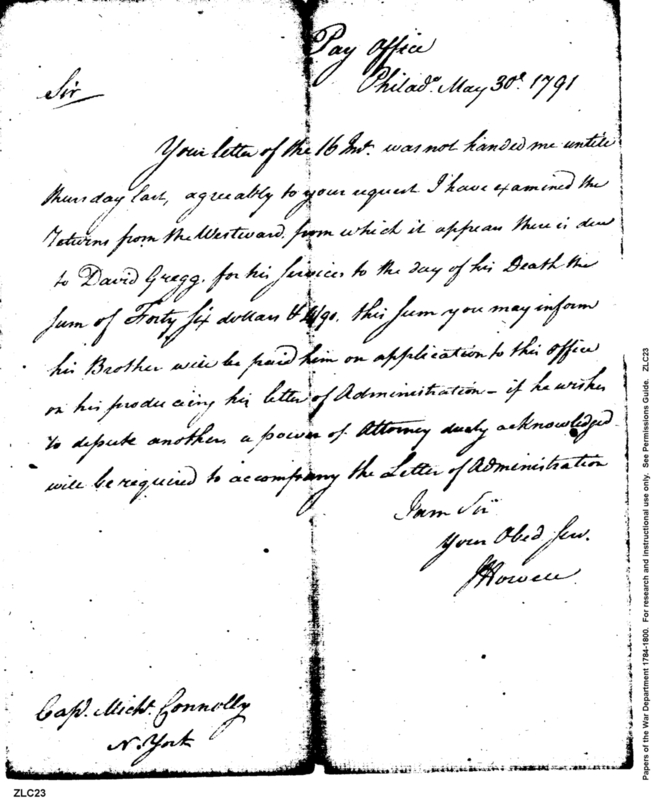 Pay Office
Philada. May 30th. 1791
Sir
Your letter of the 16 Inst. was not handed me untill
thursday last, agreeably to your request I have examined the
returns from the Westward from which it appears there is due
to David Gregg. for his services to the day of his Death the
sum of Forty Six dollars & /90. this sum you may inform
his Brother will be paid him on application to this office
on his producing his letter of Administration - if he wishes
to depute another a power of Attorney duely acknowledged
will be required to accompany the Letter of Administration
I am Sir
Your Obed Serv.
J Howell
Capt. Michl. Connolly
N. York
ZLC23
Papers of the War Department 1784-1800. For research and instructional use only. See Permissions Guide. ZLC23